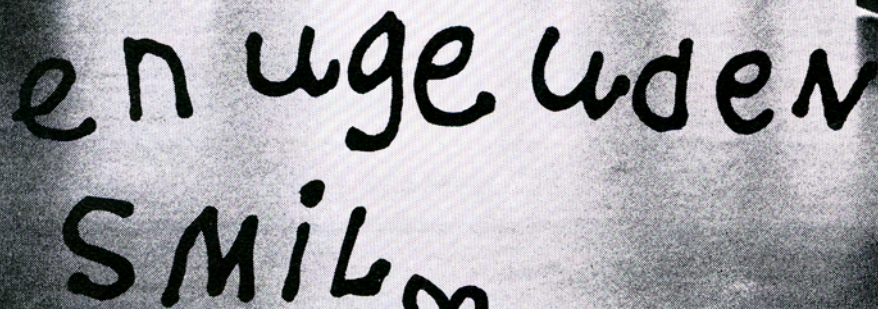 en uge uden
SMiL